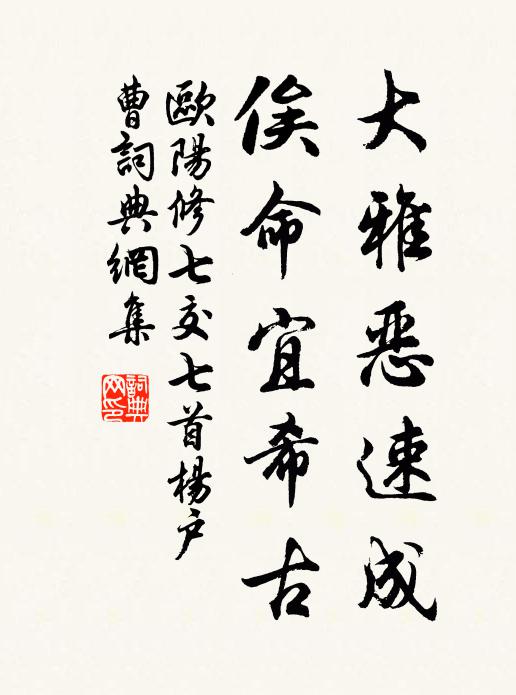 大雅惡速成
俟命宜希古
歐陽修七交七首楊户
曹詞典網集
詞典網印